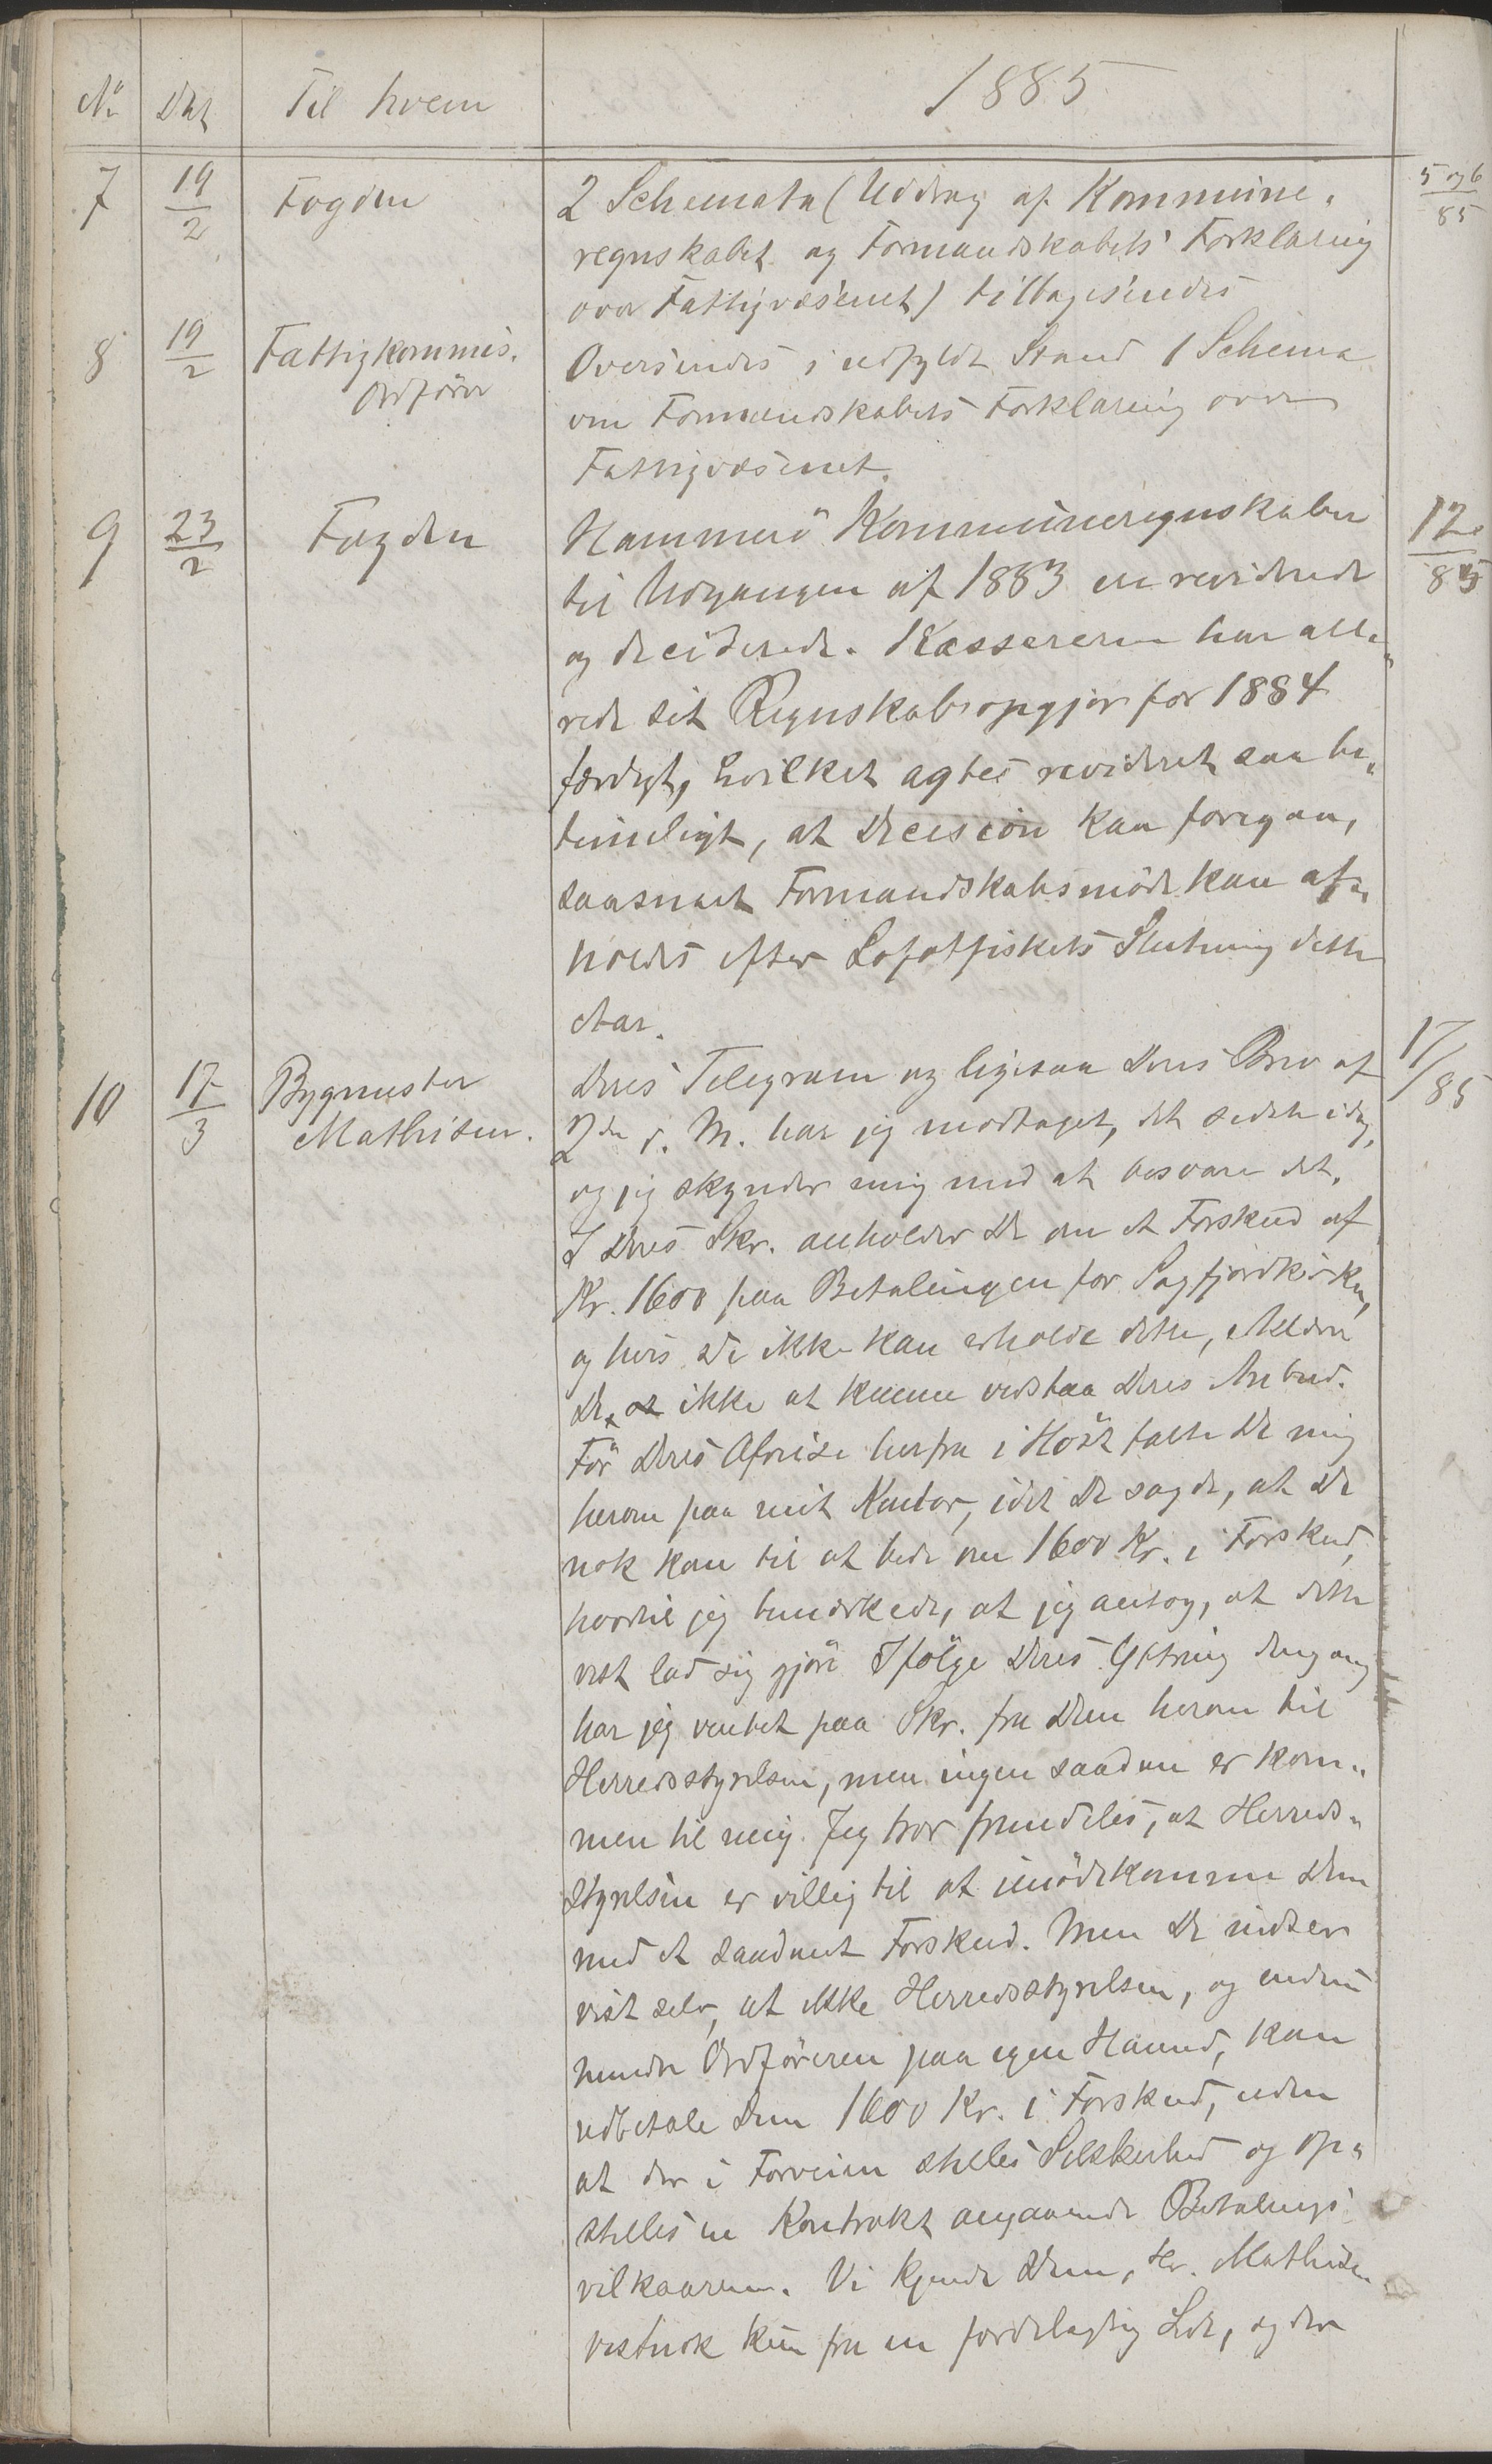 No Dat Til hvem 1885
7 19/2 Fogden 2 Schemata (Uddrag af Kommune- 5 og 6/85
regnskabet og Formandskabets Forklaring
over Fattigvæsenet) tilbagesendes
8 19/2 Fattigkommis. Oversendes i udfyldt Stand 1 Schema
Ordfører om Formandskabets Forklaring over
Fattigvæsenet.
9 23/2 Fogden Hammerö Kommuneregnskaber 12/85
til Udgangen af 1883 ere reviderede
og deciderede. Kassereren har alle-
rede sit Regnskabsopgjør for 1884
færdigt, hvilket agtes revideret saa be-
timeligt, at Decision kan foregaa,
saasnart Formandskabsmöde kan af-
holdes efter Lofotfiskets Slutning dette
Aar.
10 17/3 Bygmester Deres Telegram og ligesaa Deres Brev af 17/85
Mathisen. 2den d. M. har jeg modtaget, det sidste idag,
og jeg skynder mig med at besvare det.
I Deres Skr. anholder De om et Forskud af
Kr. 1600 paa Betalingen for Sagfjordkirken,
og hvis De ikke kan erholde dette, melder
De, ikke at kunne vedstaa Deres Anbud.
Før Deres Afreise herfra i Höst talte De mig
herom paa mit Kontor, idet De sagde, at De
nok kom til at bede om 1600 Kr. i Forskud,
hvortil jeg bemærkede, at jeg antog, at dette
vist lod sig gjöre. Ifölge Deres Yttring dengang
har jeg ventet paa Skr. fra Dem herom til
Herredsstyrelsen, men ingen saadan er kom-
men til mig. Jeg tror fremdeles, at Herreds-
styrelsen er villig til at imödekomme Dem
med et saadant Forskud. Men De indser
vist selv, at ikke Herredsstyrelsen, og endnu
mindre Ordföreren paa egen Haand, kan
udbetale Dem 1600 Kr. i Forskud, uden
at der i Forveien stilles Sikkerhed og op-
stilles en Kontrakt angaaende Betalings-
vilkaarene. Vi kjende Dem, Hr. Mathisen
vistnok kun fra en fordelagtig Side, og der